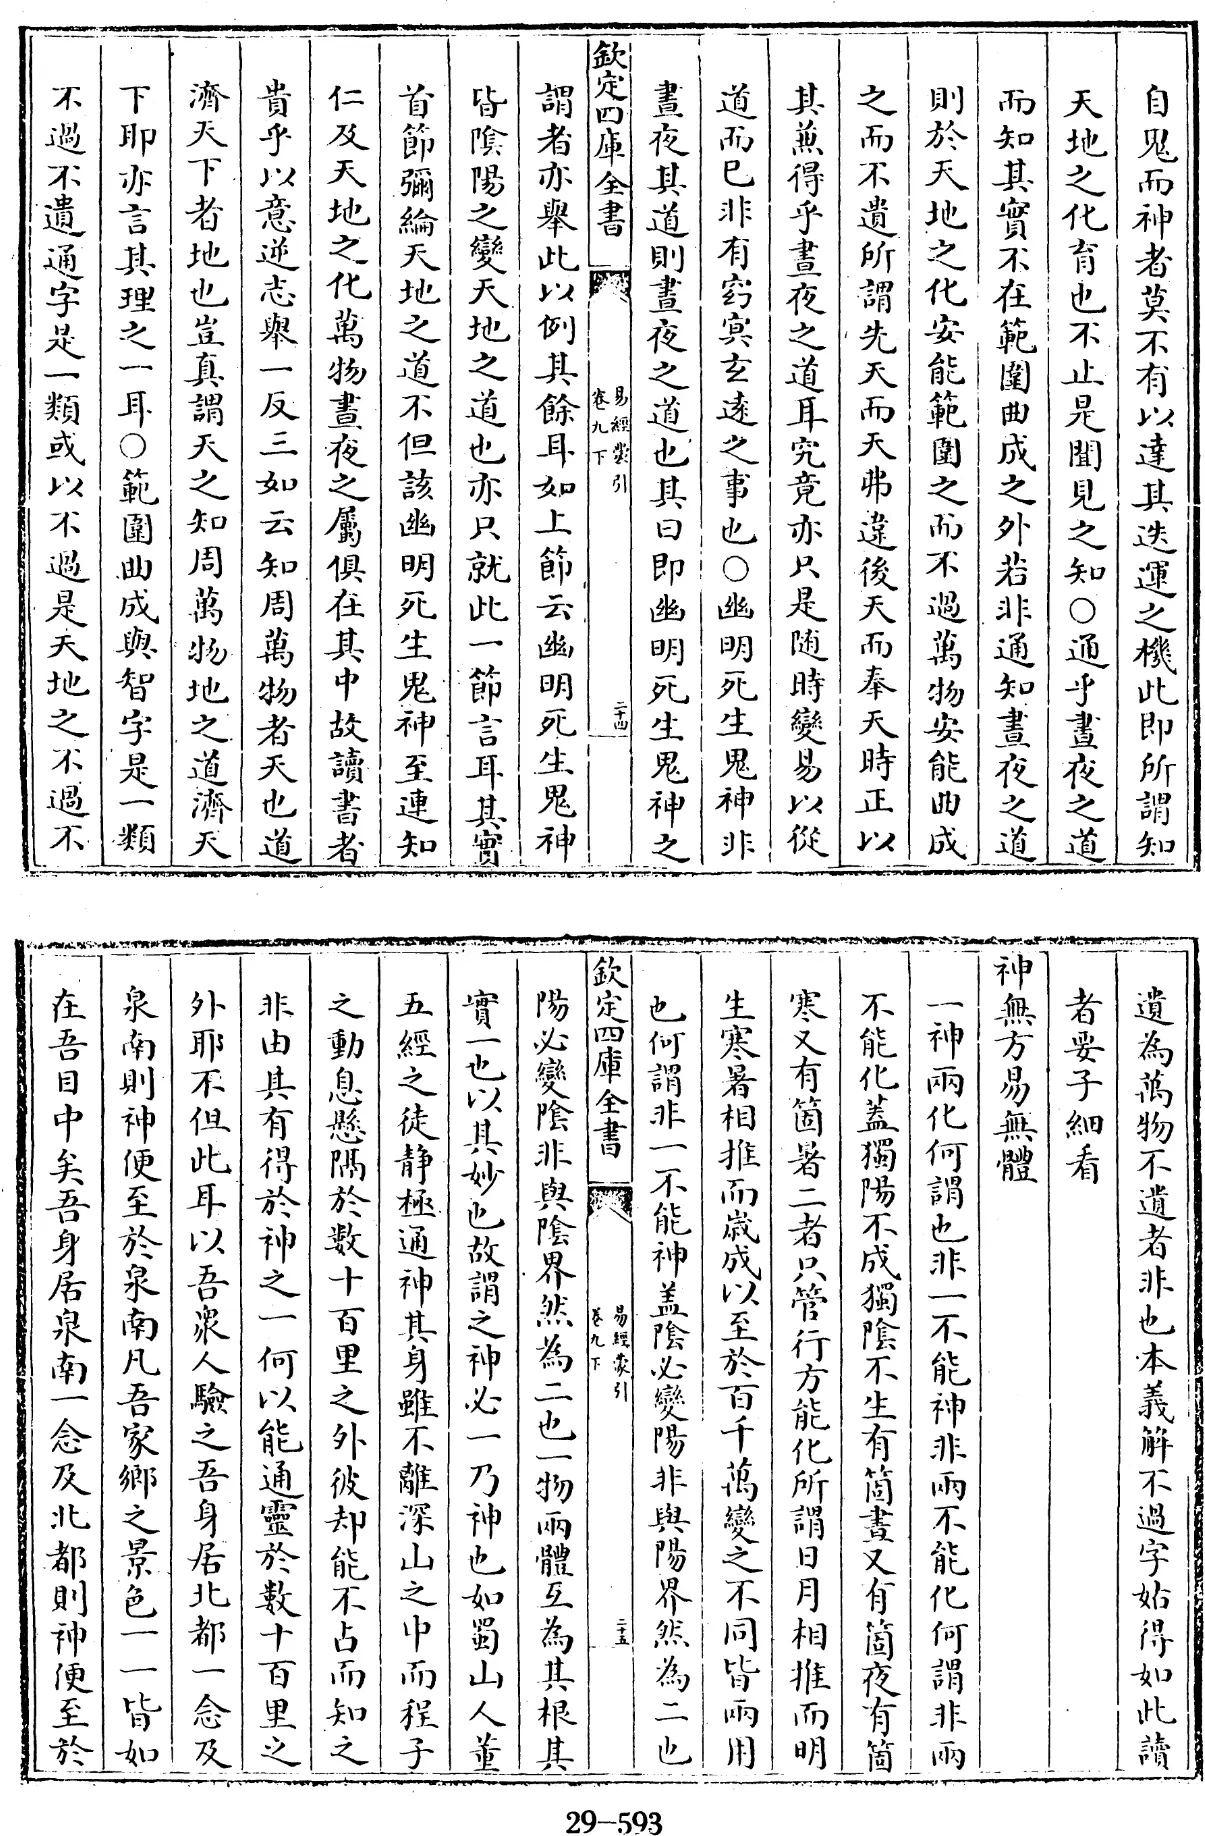 自鬼而神者莫不有以達其迭運之機此即所謂知
天地之化育也不止是聞見之知○通乎晝夜之道
而知其實不在範圍曲成之外若非通知晝夜之道
則於天地之化安能範圍之而不過萬物安能曲成
之而不遺所謂先天而天弗違後天而奉天時正以
其兼得乎晝夜之道耳究竟亦只是随時變易以從
道而已非有窈㝠玄逺之事也○幽明死生鬼神非
晝夜其道則晝夜之道也其曰即幽明死生鬼神之
欽定四庫全書
易經蒙引
卷九下
二十四
謂者亦舉此以例其餘耳如上節云幽明死生鬼神
皆隂陽之變天地之道也亦只就此一節言耳其實
首節彌綸天地之道不但該幽明死生鬼神至連知
仁及天地之化萬物晝夜之屬俱在其中故讀書者
貴乎以意逆志舉一反三如云知周萬物者天也道
濟天下者地也豈真謂天之知周萬物地之道濟天
下耶亦言其理之一耳○範圍曲成與智字是一類
不過不遺通字是一類或以不過是天地之不過不
遺為萬物不遺者非也本義解不過字姑得如此讀
者要子細看
神無方易無體
一神兩化何謂也非一不能神非兩不能化何謂非兩
不能化蓋獨陽不成獨隂不生有箇晝又有箇夜有箇
寒又有箇暑二者只管行方能化所謂日月相推而明
生寒暑相推而嵗成以至於百千萬變之不同皆兩用
也何謂非一不能神蓋隂必變陽非與陽界然為二也
欽定四庫全書
易經蒙引
卷九下
二十五
陽必變隂非與隂界然為二也一物兩體互為其根其
實一也以其妙也故謂之神必一乃神也如蜀山人董
五經之徒静極通神其身雖不離深山之中而程子
之動息懸隔於數十百里之外彼却能不占而知之
非由其有得於神之一何以能通靈於數十百里之
外耶不但此耳以吾衆人驗之吾身居北都一念及
泉南則神便至於泉南凡吾家鄉之景色一一皆如
在吾目中矣吾身居泉南一念及北都則神便至於
29-593